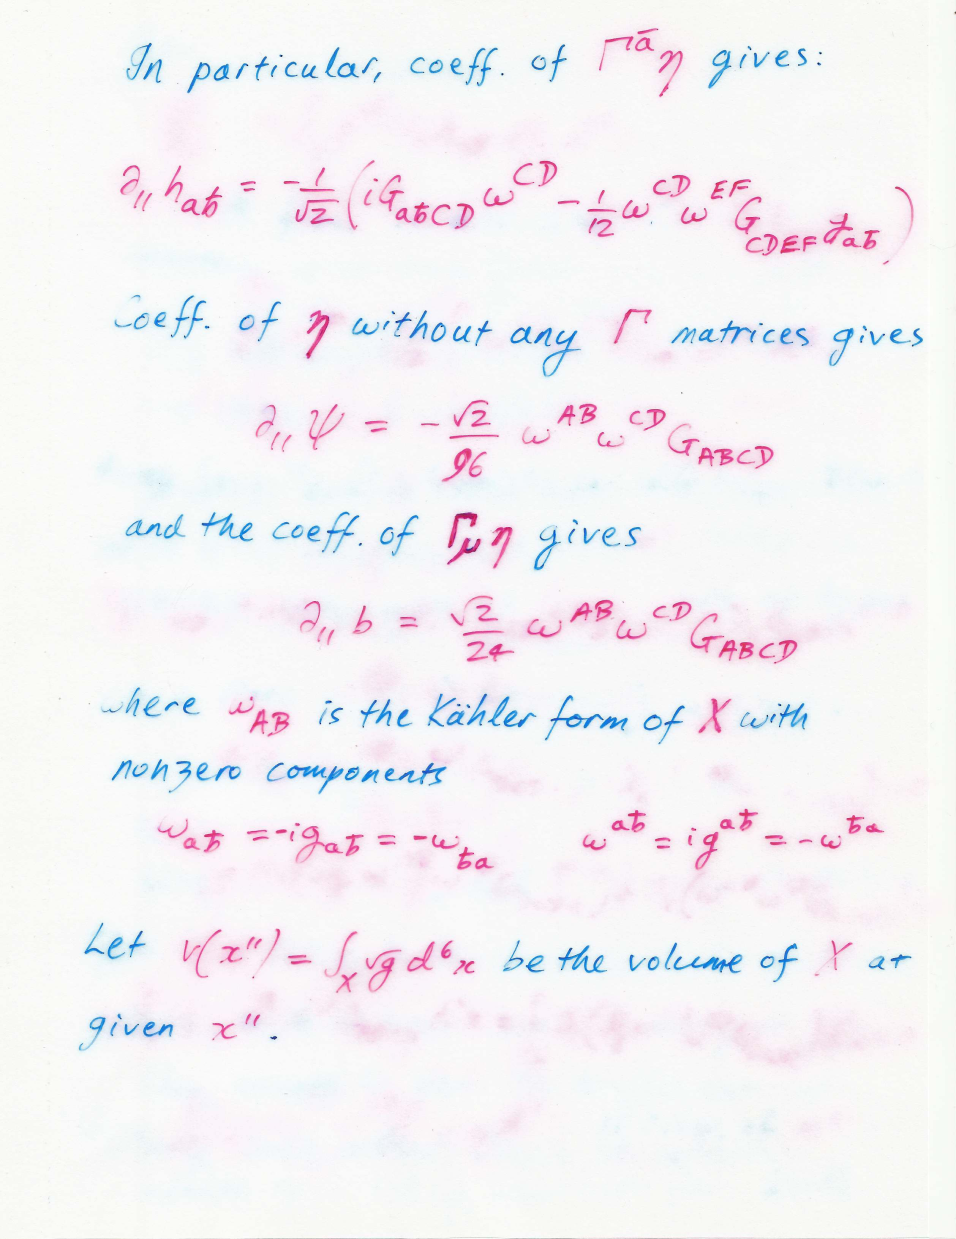 In particular, coeff. of Γ^ā η gives:
∂₁₁ h_{ab̄} = -1/√2 (iG_{ab̄CD} ω^{CD} - 1/12 ω^{CD} ω^{EF} G_{CDEF} g_{ab̄})
Coeff. of η without any Γ matrices gives
∂₁₁ ψ = - √2/96 ω^{AB} ω^{CD} G_{ABCD}
and the coeff. of Γ_μ η gives
∂₁₁ b = √2/24 ω^{AB} ω^{CD} G_{ABCD}
where ω_{AB} is the Kähler form of X with
nonzero components
ω_{ab̄} = -ig_{ab̄} = -ω_{b̄a} ω^{ab̄} = ig^{ab̄} = -ω^{b̄a}
Let v(x¹¹) = ∫_X √g d⁶x be the volume of X at
given x¹¹.